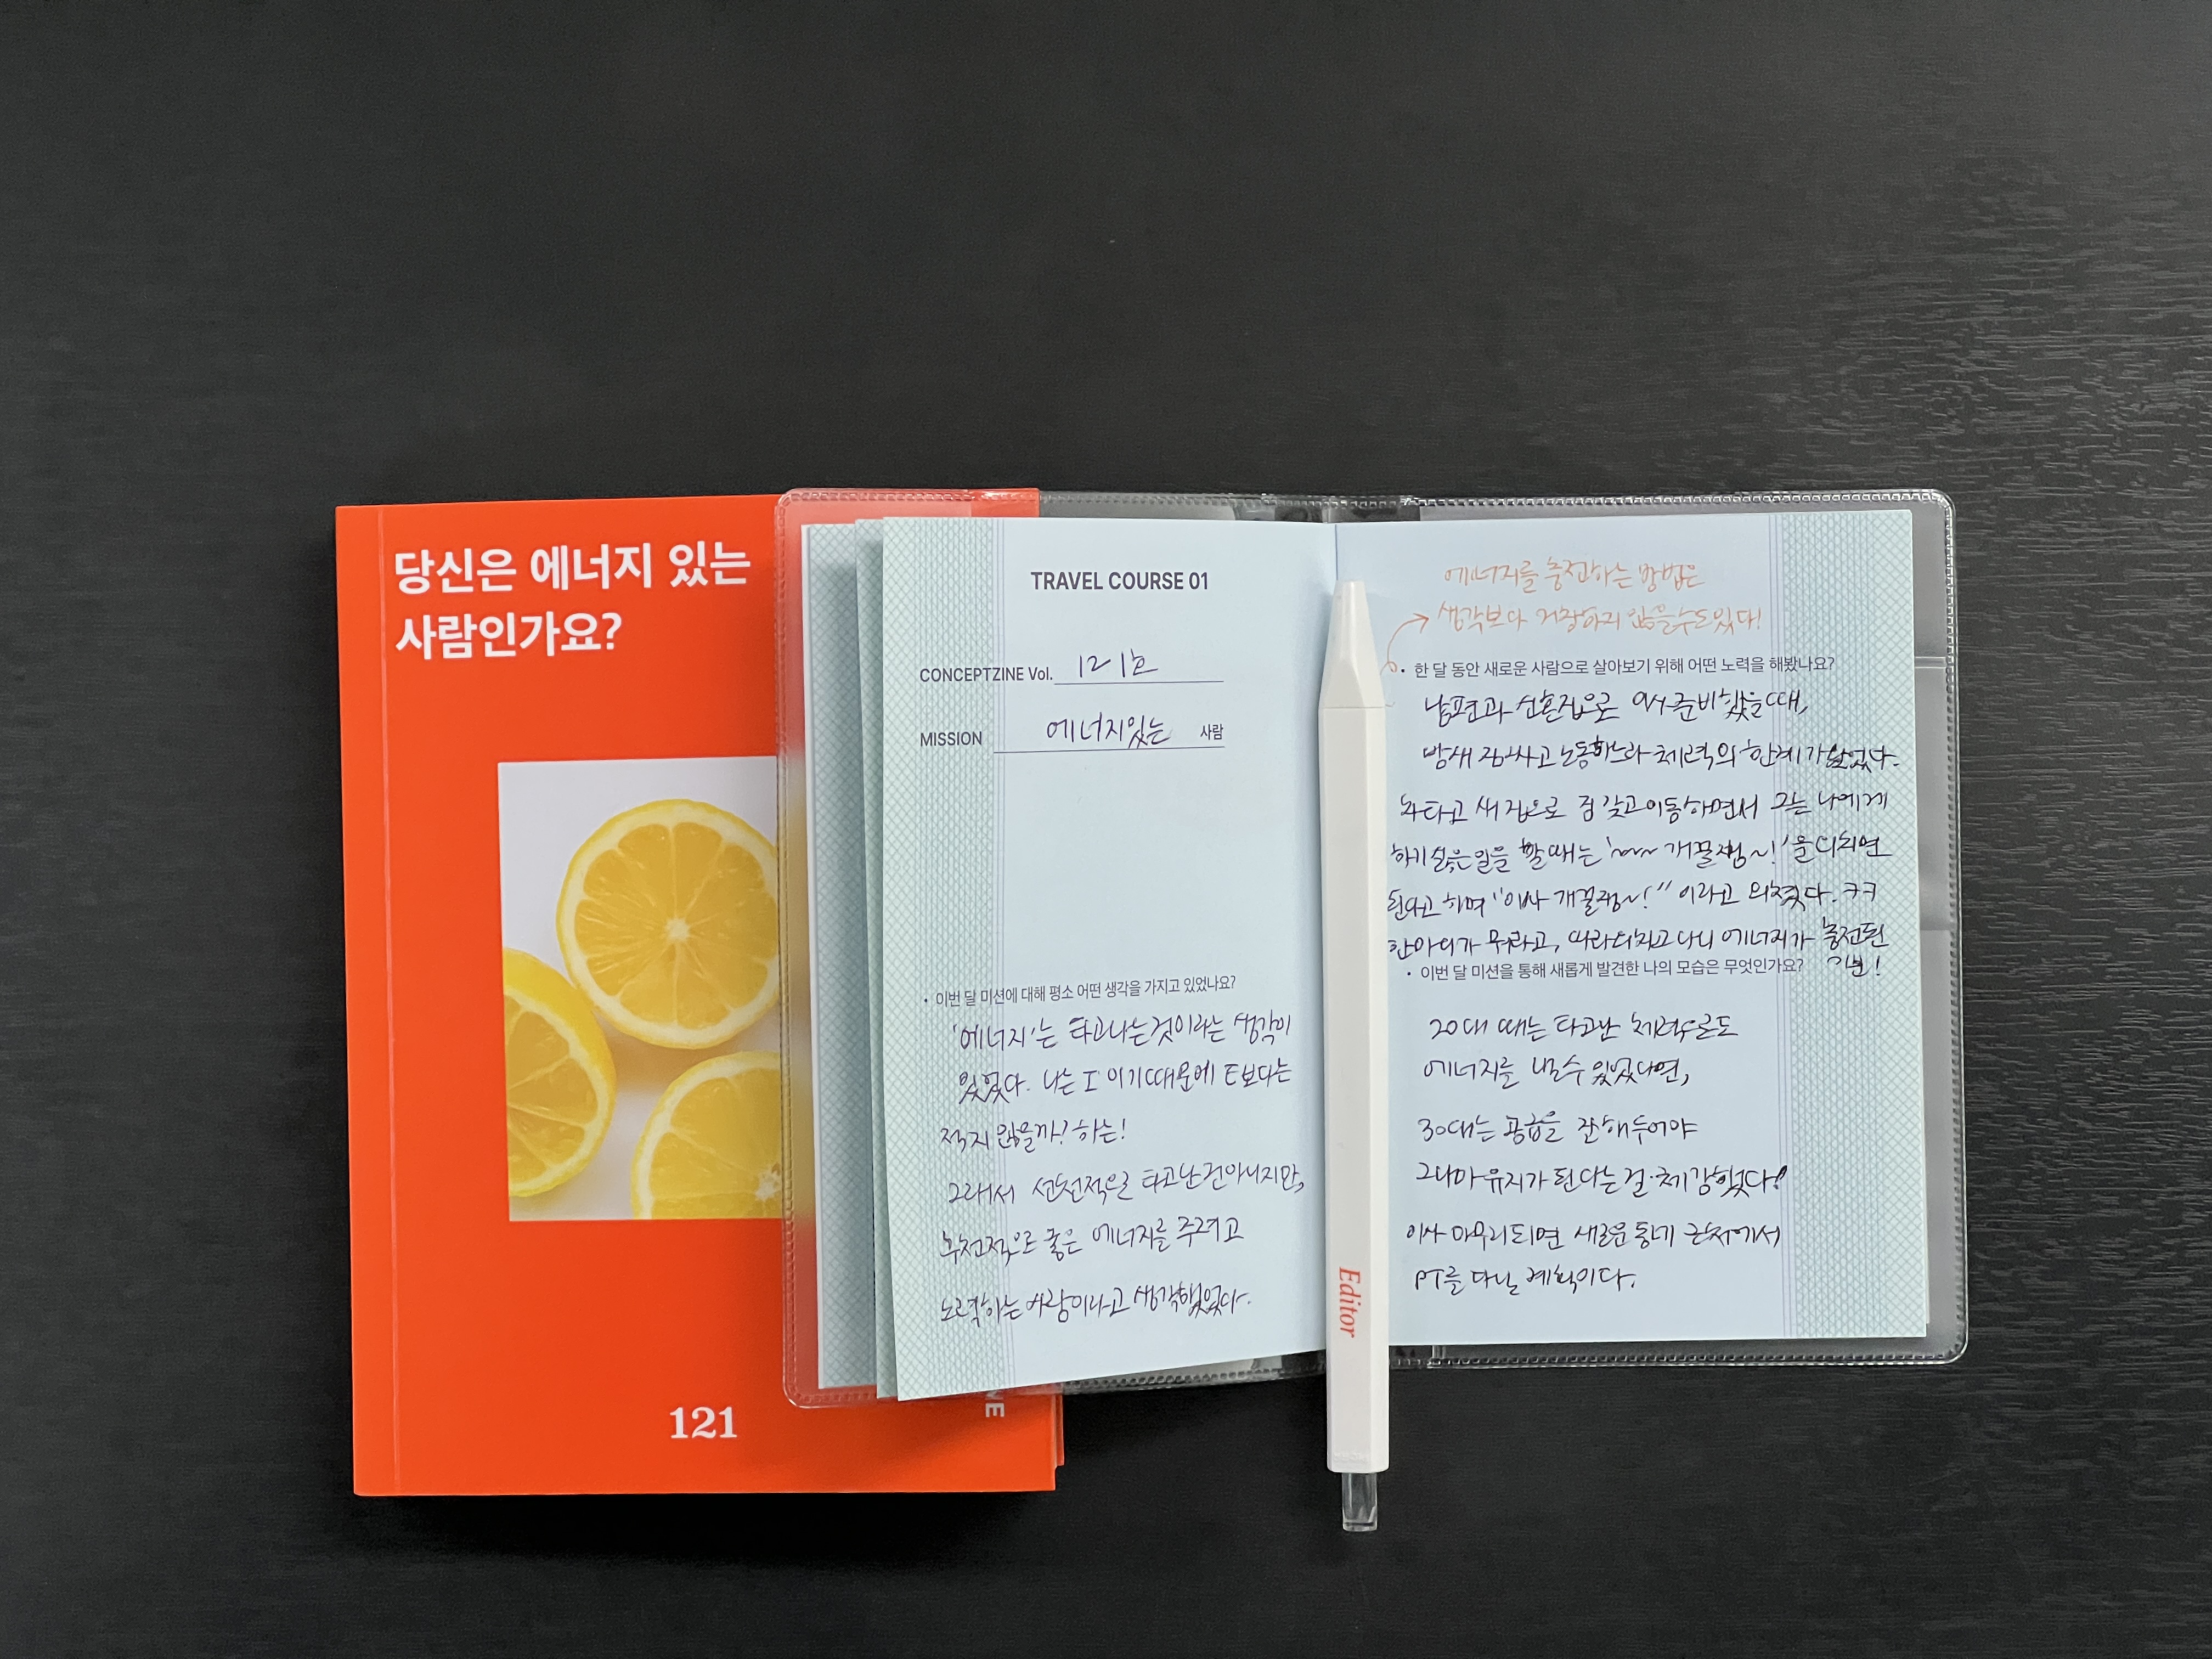 당신은 에너지 있는
사람인가요?
121
NE
TRAVEL COURSE 01
CONCEPTZINE Vol. 121호
MISSION 에너지있는 사람
• 이번 달 미션에 대해 평소 어떤 생각을 가지고 있었나요?
'에너지'는 타고나는것이라는 생각이
있었다. 나는 I 이기때문에 E보다는
적지 않을까? 하는!
그래서 선천적으로 타고난건아니지만,
후천적으로 좋은 에너지를 주려고
노력하는 사람이라고 생각했었다.
에너지를 충전하는 방법은
생각보다 거창하지 않을수도있다!
• 한 달 동안 새로운 사람으로 살아보기 위해 어떤 노력을 해봤나요?
남편과 신혼집으로 이사준비했을때,
밤새 짐싸고 노동하느라 체력의 한계가 왔었다.
차타고 새집으로 짐 갖고이동하면서 그는 나에게
하기 싫은일을 할때는 '~~~ 개꿀잼~!'을 외치면
된다고 하며 "이사 개꿀잼~!" 이라고 외쳤다. ㅋㅋ
한마디가 뭐라고, 따라외치고나니 에너지가 충전된
기분!
• 이번 달 미션을 통해 새롭게 발견한 나의 모습은 무엇인가요?
20대 때는 타고난 체력으로도
에너지를 낼수 있었다면,
30대는 공급을 잘해두어야
그나마 유지가 된다는걸 체감했다!
이사 마무리되면 새로운동네 근처에서
PT를 다닐 계획이다.
Editor